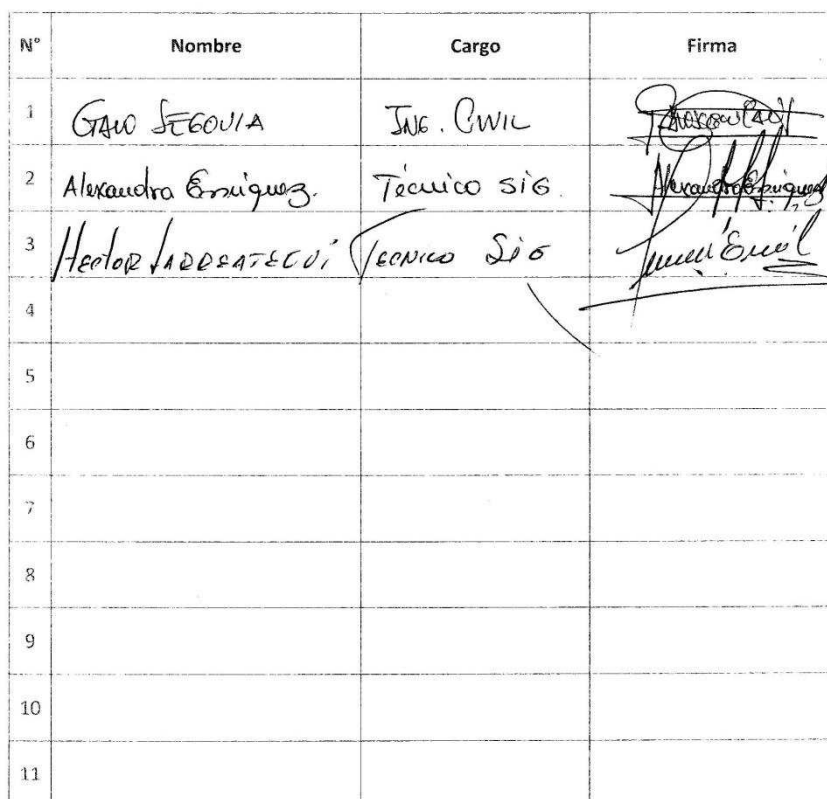 N° Nombre Cargo Firma
1 GALO SEGOVIA ING. CIVIL
2 Alexandra Enríquez. Técnico SIG. Alexandra Enríquez
3 HECTOR TECNICO SIG
4
5
6
7
8
9
10
11